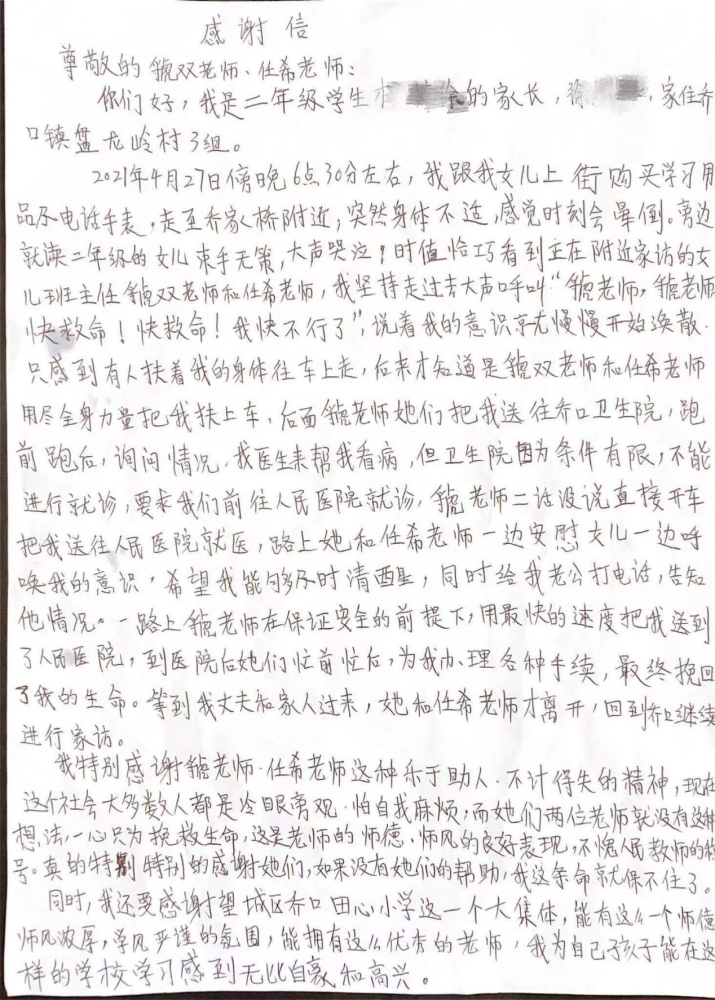 感谢信
尊敬的虢双老师、任希老师:
你们好,我是二年级学生 的家长, ,家住乔
口镇盘龙岭村3组。
2021年4月27日傍晚6点30分左右,我跟我女儿上街购买学习用
品及电话手表,走至乔家桥附近,突然身体不适,感觉时刻会晕倒。旁边
就读二年级的女儿束手无策,大声哭泣!时值恰巧看到正在附近家访的女
儿班主任虢双老师和任希老师,我坚持走过去大声呼叫“虢老师,虢老师
快救命!快救命!我快不行了”,说着我的意识就慢慢开始涣散.
只感到有人扶着我的身体往车上走,后来才知道是虢双老师和任希老师
用尽全身力量把我扶上车,后面虢老师她们把我送往乔口卫生院,跑
前跑后,询问情况,找医生来帮我看病,但卫生院因为条件有限,不能
进行就诊,要求我们前往人民医院就诊,虢老师二话没说直接开车
把我送往人民医院就医,路上她和任希老师一边安慰女儿一边呼
唤我的意识,希望我能够及时清醒,同时给我老公打电话,告知
他情况。一路上虢老师在保证安全的前提下,用最快的速度把我送到
了人民医院,到医院后她们忙前忙后,为我办理各种手续,最终挽回
了我的生命。等到我丈夫和家人过来,她和任希老师才离开,回到乔口继续
进行家访。
我特别感谢虢老师、任希老师这种乐于助人、不计得失的精神,现在
这个社会大多数人都是冷眼旁观、怕自我麻烦,而她们两位老师就没有这种
想法,一心只为挽救生命,这是老师的师德、师风的良好表现,不愧人民教师的称
号。真的特别特别的感谢她们,如果没有她们的帮助,我这条命就保不住了。
同时,我还要感谢望城区乔口田心小学这一个大集体,能有这么一个师德
师风浓厚,学风严谨的氛围,能拥有这么优秀的老师,我为自己孩子能在这
样的学校学习感到无比自豪和高兴。